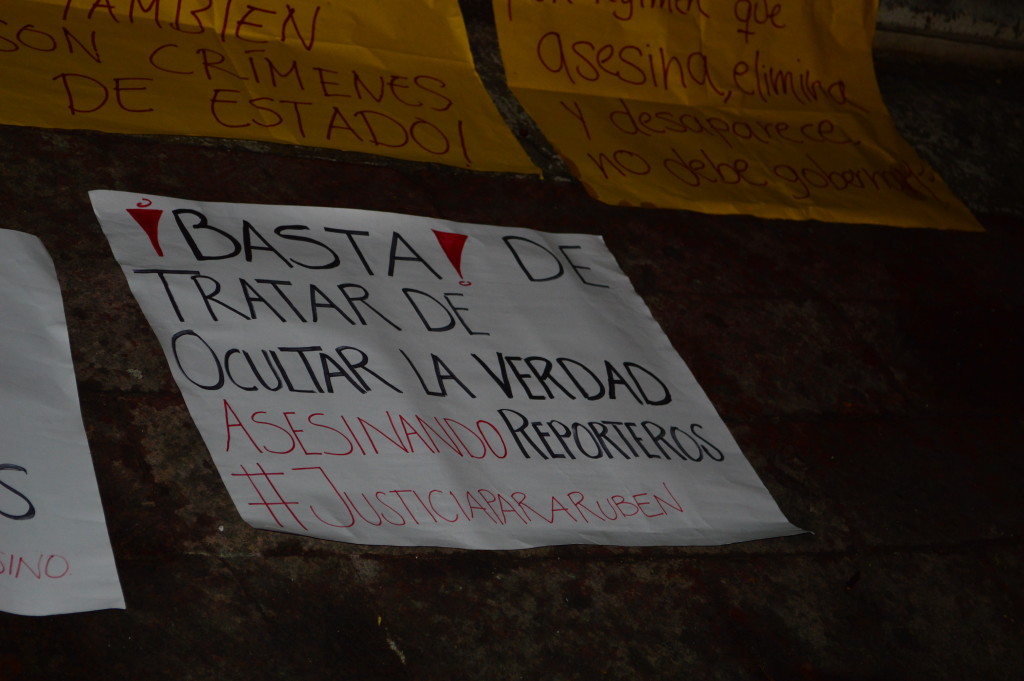 TAMBIEN
SON CRÍMENES
DE ESTADO!
régimen que
asesina, elimina
y desaparece
no debe
¡BASTA! DE
TRATAR DE
OCULTAR LA VERDAD
ASESINANDO REPORTEROS
#JUSTICIAPARARUBEN
S
SINO